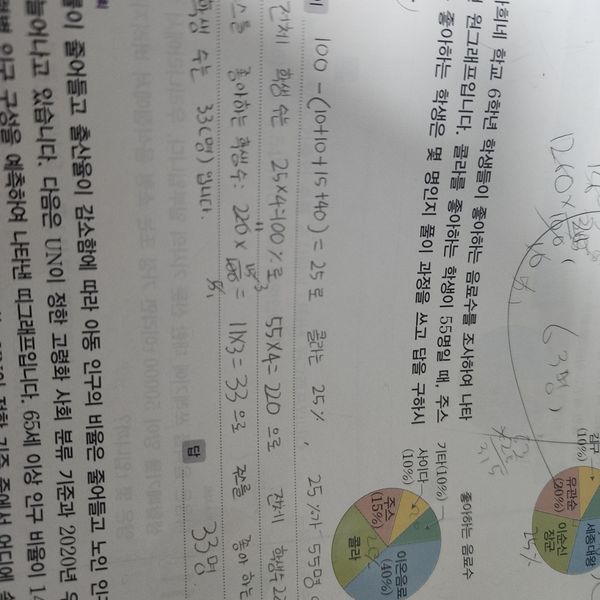 하희네 학교 6학년 학생들이 좋아하는 음료수를 조사하여 나타
원그래프입니다. 콜라를 좋아하는 학생이 55명일 때, 주스
좋아하는 학생은 몇 명인지 풀이 과정을 쓰고 답을 구하시
좋아하는 음료수
기타(10%)
사이다
(10%)
주스
(15%)
이온음료
(40%)
콜라
100-(10+10+15+40)=25로 콜라는 25%, 25%가 55명
전체 학생 수는 25×4=100%로, 55×4=220으로 전체 학생수 22
스를 좋아하는 학생수: 220×15/100= 11×3=33으로 주스를 좋아하는
학생 수는 33(명)입니다.
답 33명
김구
(10%)
유관순
(20%)
이순신
장군
세종대왕
25%
(63명)
율이 줄어들고 출산율이 감소함에 따라 아동 인구의 비율은 줄어들고 노인 인
늘어나고 있습니다. 다음은 UN이 정한 고령화 사회 분류 기준과 2020년 우
인구 구성을 예측하여 나타낸 띠그래프입니다. 65세 이상 인구 비율이 14